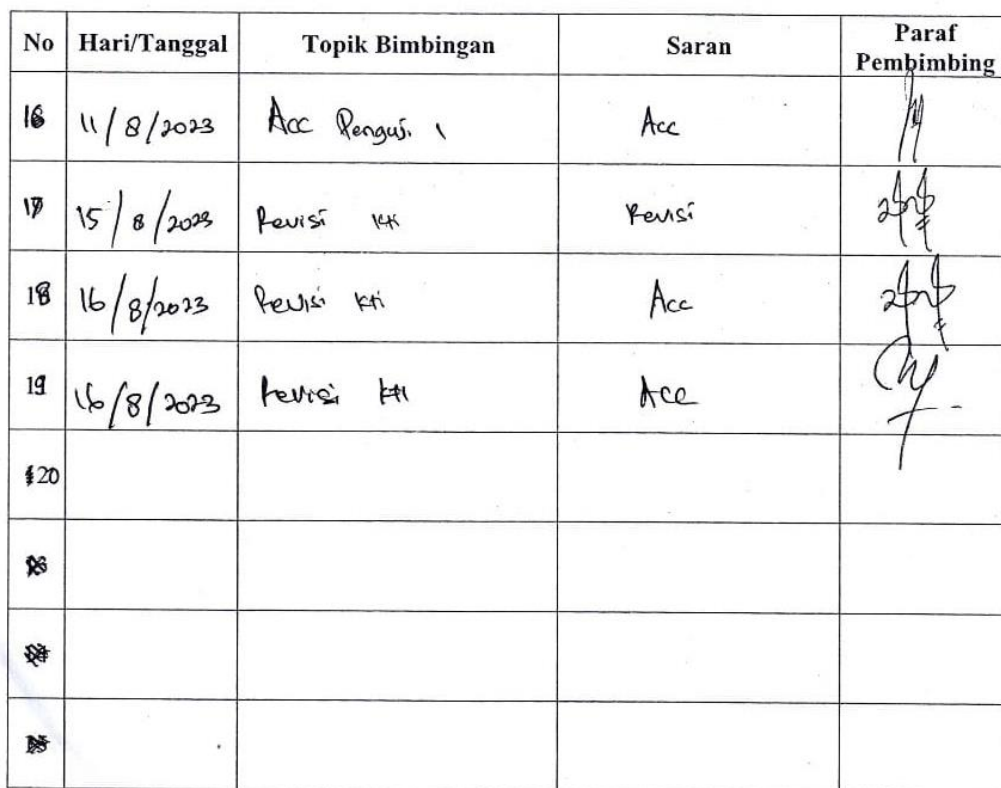 No Hari/Tanggal Topik Bimbingan Saran Paraf Pembimbing
16 11/8/2023 Acc Penguji 1 Acc
17 15/8/2023 Revisi kti Revisi
18 16/8/2023 Revisi kti Acc
19 16/8/2023 Revisi kti Acc
20